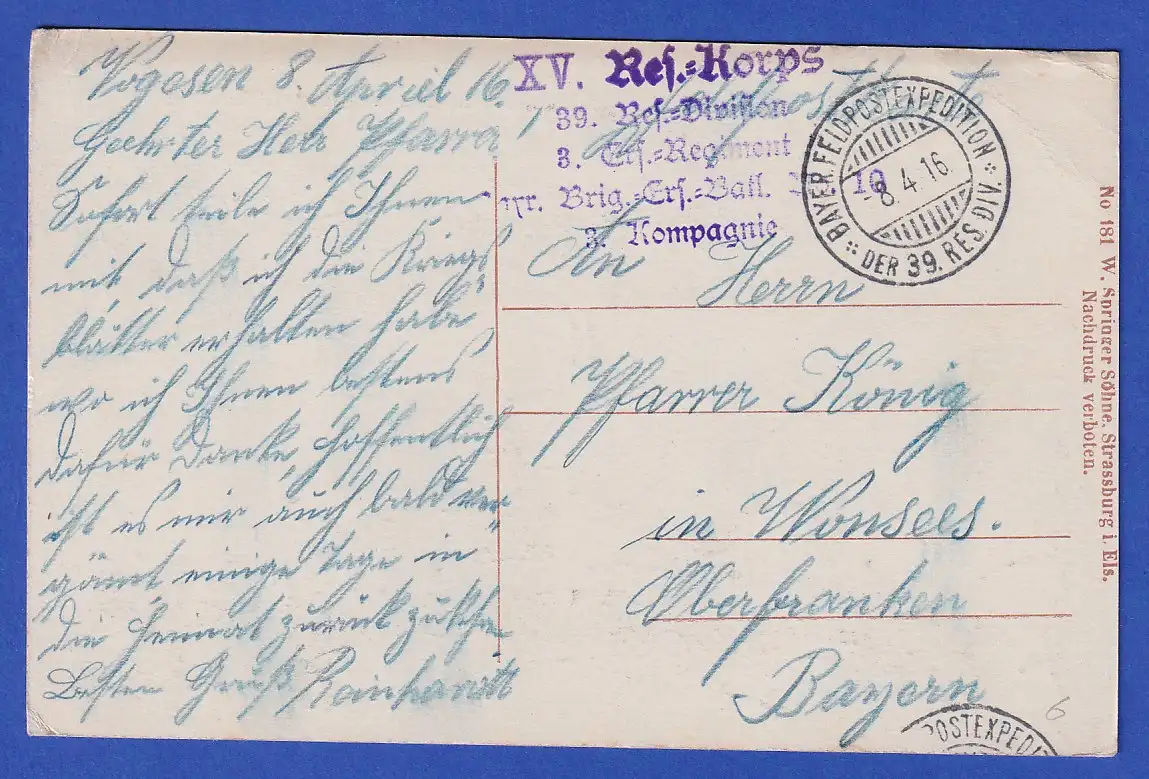 Vogesen 8. April 16.
Geehrter Herr Pfarrer
Sofort teile ich Ihnen
mit, daß ich die Kriegs-
blätter erhalten habe
wo ich Ihnen bestens
dafür danke, hoffentlich
ist es mir auch bald ver-
gönnt, einige Tage in
die Heimat zurück zu
Besten Gruß Reinhardt
XV. Res.-Korps
39. Res.-Division
3. Ers.-Regiment
Brig.-Ers.-Batl. 10
3. Kompagnie
BAYER. FELDPOSTEXPEDITION
8.4.16
DER 39. RES. DIV.
An Herrn
Pfarrer König
in Wonsees.
Oberfranken
Bayern
No 181 W. Springer Söhne, Strassburg i. Els.
Nachdruck verboten.
POSTEXPEDI
6